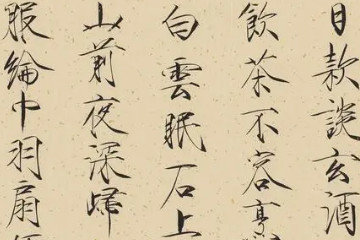 日款談玄酒
飲茶不容
白雲眠石上
山前夜深歸
服綸巾羽扇